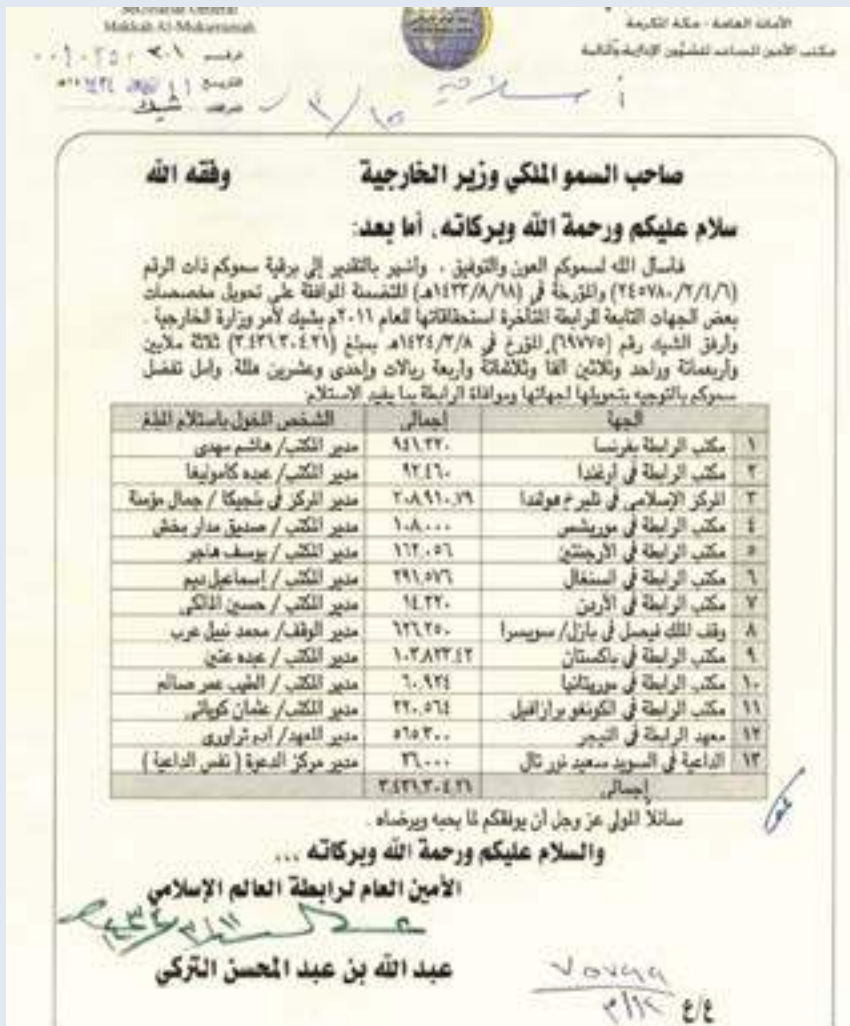 Secretariat General
Makkah Al-Mukarramah
الأمانة العامة - مكة المكرمة
مكتب الأمين المساعد للشؤون الإدارية والمالية
أ سلامية
صاحب السمو الملكي وزير الخارجية وفقه الله
سلام عليكم ورحمة الله وبركاته، أما بعد:
فأسأل الله لسموكم العون والتوفيق ، وأشير بالتقدير إلى برقية سموكم ذات الرقم
(٢٤٥٧٨٠/٢/٤/٦) والمؤرخة في (١٤٣٣/٨/١٨هـ) المتضمنة الموافقة على تحويل مخصصات
بعض الجهات التابعة للرابطة المتأخرة استحقاقاتها للعام ٢٠١١م بشيك لأمر وزارة الخارجية .
وأرفق الشيك رقم (٦٩٧٧٥) المؤرخ في ١٤٣٤/٣/٨هـ بمبلغ (٣.٤٣١.٣٠٤.٢١) ثلاثة ملايين
وأربعمائة وواحد وثلاثين ألفا وثلاثمائة وأربعة ريالات وإحدى وعشرين هللة. وآمل تفضل
سموكم بالتوجيه بتحويلها لجهاتها وموافاة الرابطة بما يفيد الاستلام:
الجهة إجمالي الشخص المخول باستلام المبلغ
١ مكتب الرابطة بفرنسا ٩٤١.٣٢٠ مدير المكتب/ هاشم مهدي
٢ مكتب الرابطة في أوغندا ٩٢.٤٦٠ مدير المكتب/ عبده كاموليغا
٣ المركز الإسلامي في هولندا ٢٠٨.٩١٠.٧٩ مدير المركز في بلجيكا / جمال مؤمنة
٤ مكتب الرابطة في موريشس ١٠٨.٠٠٠ مدير المكتب / صديق مدار بخش
٥ مكتب الرابطة في الأرجنتين ١٦٢.٠٥٦ مدير المكتب / يوسف هاجر
٦ مكتب الرابطة في السنغال ٢٩١.٥٧٦ مدير المكتب / إسماعيل ديم
٧ مكتب الرابطة في الأردن ١٤.٢٢٠ مدير المكتب / حسين المالكي
٨ وقف الملك فيصل في بازل/ سويسرا ٦٢٦.٢٥٠ مدير الوقف/ محمد نبيل عرب
٩ مكتب الرابطة في باكستان ١٠٣.٨٢٣.٤٢ مدير المكتب / عبده عتين
١٠ مكتب الرابطة في موريتانيا ٦٠.٩٢٤ مدير المكتب / الطيب عمر صالم
١١ مكتب الرابطة في الكونغو برازافيل ٢٢٠.٥٦٤ مدير المكتب/ عثمان كوباتي
١٢ معهد الرابطة في النيجر ٥٦٥.٣٠٠ مدير المعهد/ آدم تراوري
١٣ الداعية في السويد سعيد نور تال ٣٦.٠٠٠ مدير مركز الدعوة ( نفس الداعية )
إجمالي ٣.٤٣١.٣٠٤.٢١
سائلاً المولى عز وجل أن يوفقكم لما يحبه ويرضاه .
والسلام عليكم ورحمة الله وبركاته ...
الأمين العام لرابطة العالم الإسلامي
عبد الله بن عبد المحسن التركي
ع/ع